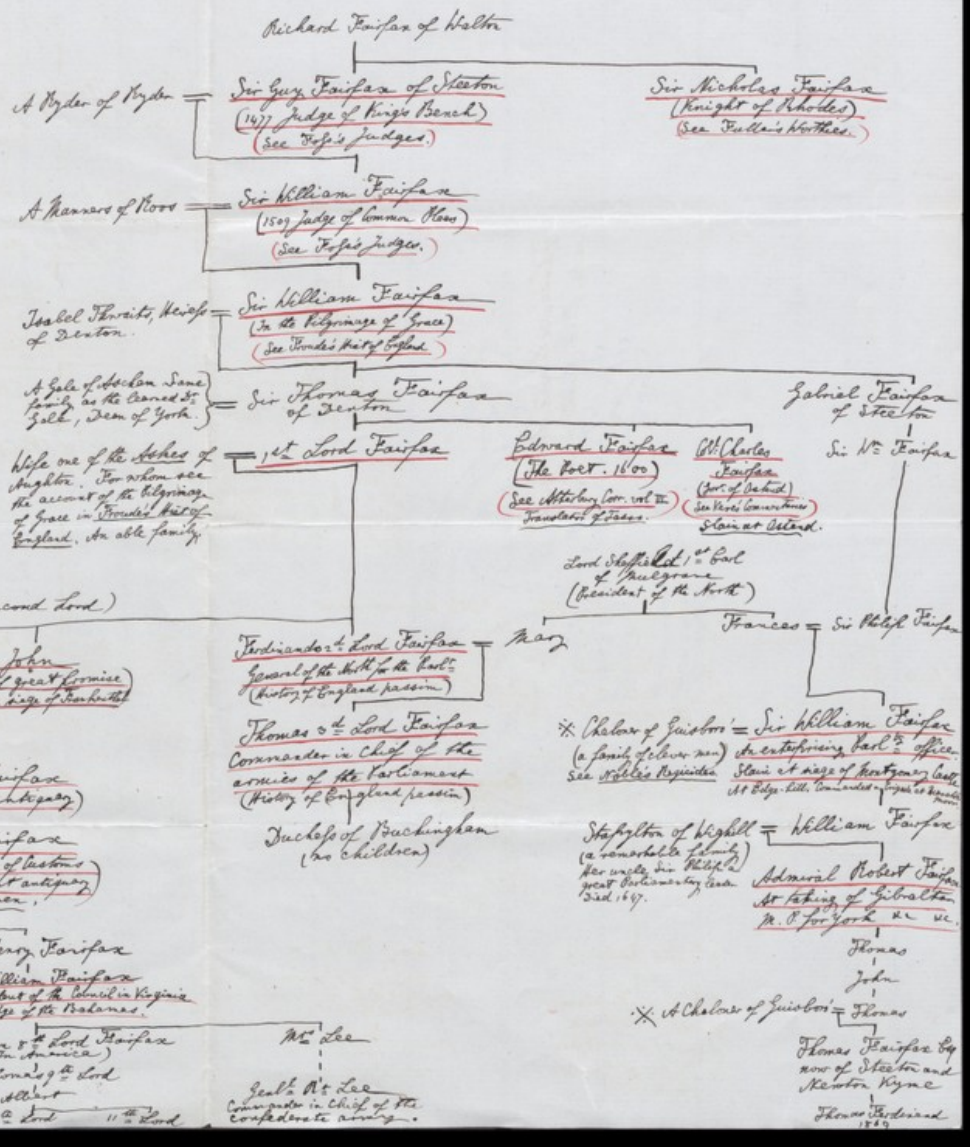 Richard Fairfax of Walton
A Ryder of Ryder
Sir Guy Fairfax of Steeton
(1477 Judge of King's Bench)
(See Foss's Judges.)
Sir Nicholas Fairfax
(Knight of Rhodes)
(See Fuller's Worthies.)
A Manners of Roos
Sir William Fairfax
(1509 Judge of Common Pleas)
(See Foss's Judges.
Isabel Thwaits, Heiress
of Denton.
Sir William Fairfax
(In the Pilgrimage of Grace)
(See Froude's Hist of England)
A Gale of Ascham Same
family as the learned Dr
Gale, Dean of York.
Sir Thomas Fairfax
of Denton
Gabriel Fairfax
of Steeton
Wife one of the Askes of
Aughton. For whom see
the account of the Pilgrimage
of Grace in Froude's Hist of
England. An able family.
1st Lord Fairfax
Edward Fairfax
(The Poet. 1600)
(See Atterbury Corr. vol III)
Translator of Tasso.
Col. Charles
Fairfax
(Gov. of Ostend)
(See Vere's Commentaries)
Slain at Ostend.
Sir Wm Fairfax
Lord Sheffield 1st Earl
of Mulgrave
(President of the North)
cond Lord)
John
great promise)
siege of Frankenthal
Ferdinando 2d Lord Fairfax
General of the North for the Parlt
(History of England passim)
Mary
Frances
Sir Philip Fairfax
Thomas 3d Lord Fairfax
Commander in Chief of the
armies of the Parliament
(History of England passim)
※ Chaloner of Guisboro'
(a family of clever men)
See Noble's Regicides
Sir William Fairfax
An enterprising Parlts officer
Slain at siege of Montgomery Castle
At Edge-hill. Commanded a brigade at Marston
moor
irfax
antiquary)
Duchess of Buckingham
(no children)
Stapylton of Wighill
(a remarkable family)
Her uncle Sir Philip a
great Parliamentary leader
Died 1647.
William Fairfax
irfax
of Customs
t antiquary)
Admiral Robert Fairfax
At taking of Gibraltar
M.P. for York &c &c.
enry Fairfax
lliam Fairfax
dent of the Council in Virginia
ge of the Bahamas.
Thomas
John
※ A Chaloner of Guisboro'
Thomas
8th Lord Fairfax
in America)
omas 9th Lord
Albert
Lord
11th Lord
Mrs Lee
Genl. Rt Lee
Commander in Chief of the
confederate army.
Thomas Fairfax Esq
now of Steeton and
Newton Kyme
Thomas Ferdinand
1869